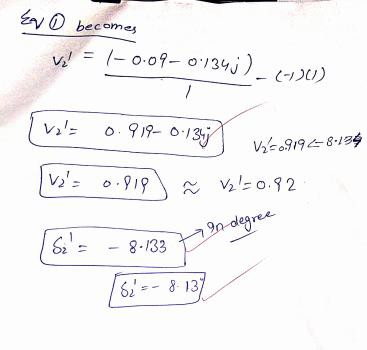 Eq ① becomes
V₂' = (-0.09-0.134j) / 1 - (-1)(1)
V₂' = 0.919-0.134j
V₂'=0.919<-8.134
V₂' = 0.919 ≈ V₂'=0.92
δ₂' = - 8.133 → In degree
δ₂' = - 8.13°